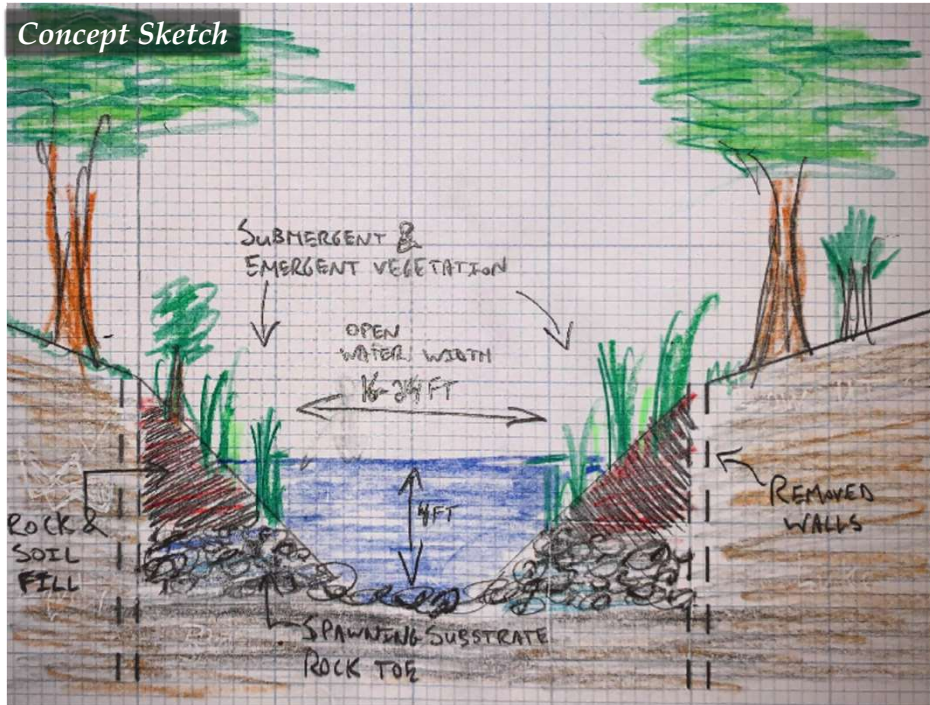 Concept Sketch
SUBMERGENT &
EMERGENT VEGETATION
OPEN
WATER WIDTH
16-24 FT
4FT
ROCK &
SOIL
FILL
REMOVED
WALLS
SPAWNING SUBSTRATE
ROCK TOE